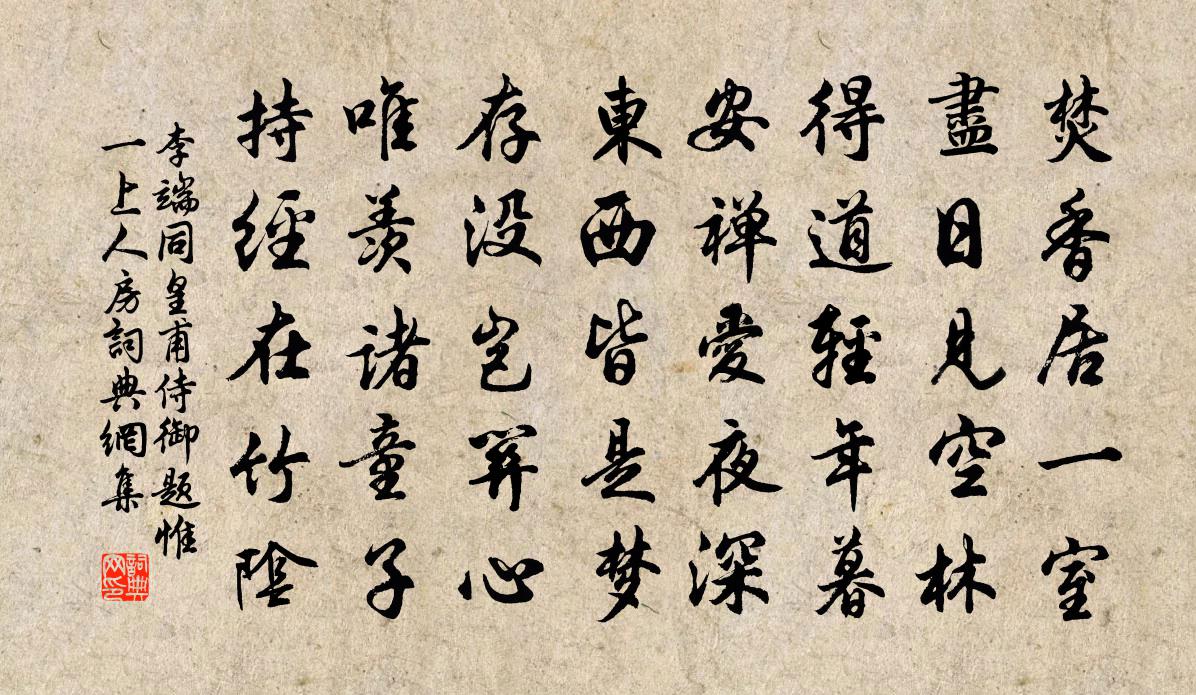 焚香居一室
盡日見空林
得道輕年暮
安禅愛夜深
東西皆是梦
存没岂関心
唯羨諸童子
持經在竹陰
李端同皇甫侍御題惟
一上人房詞典網集
詞典
网印